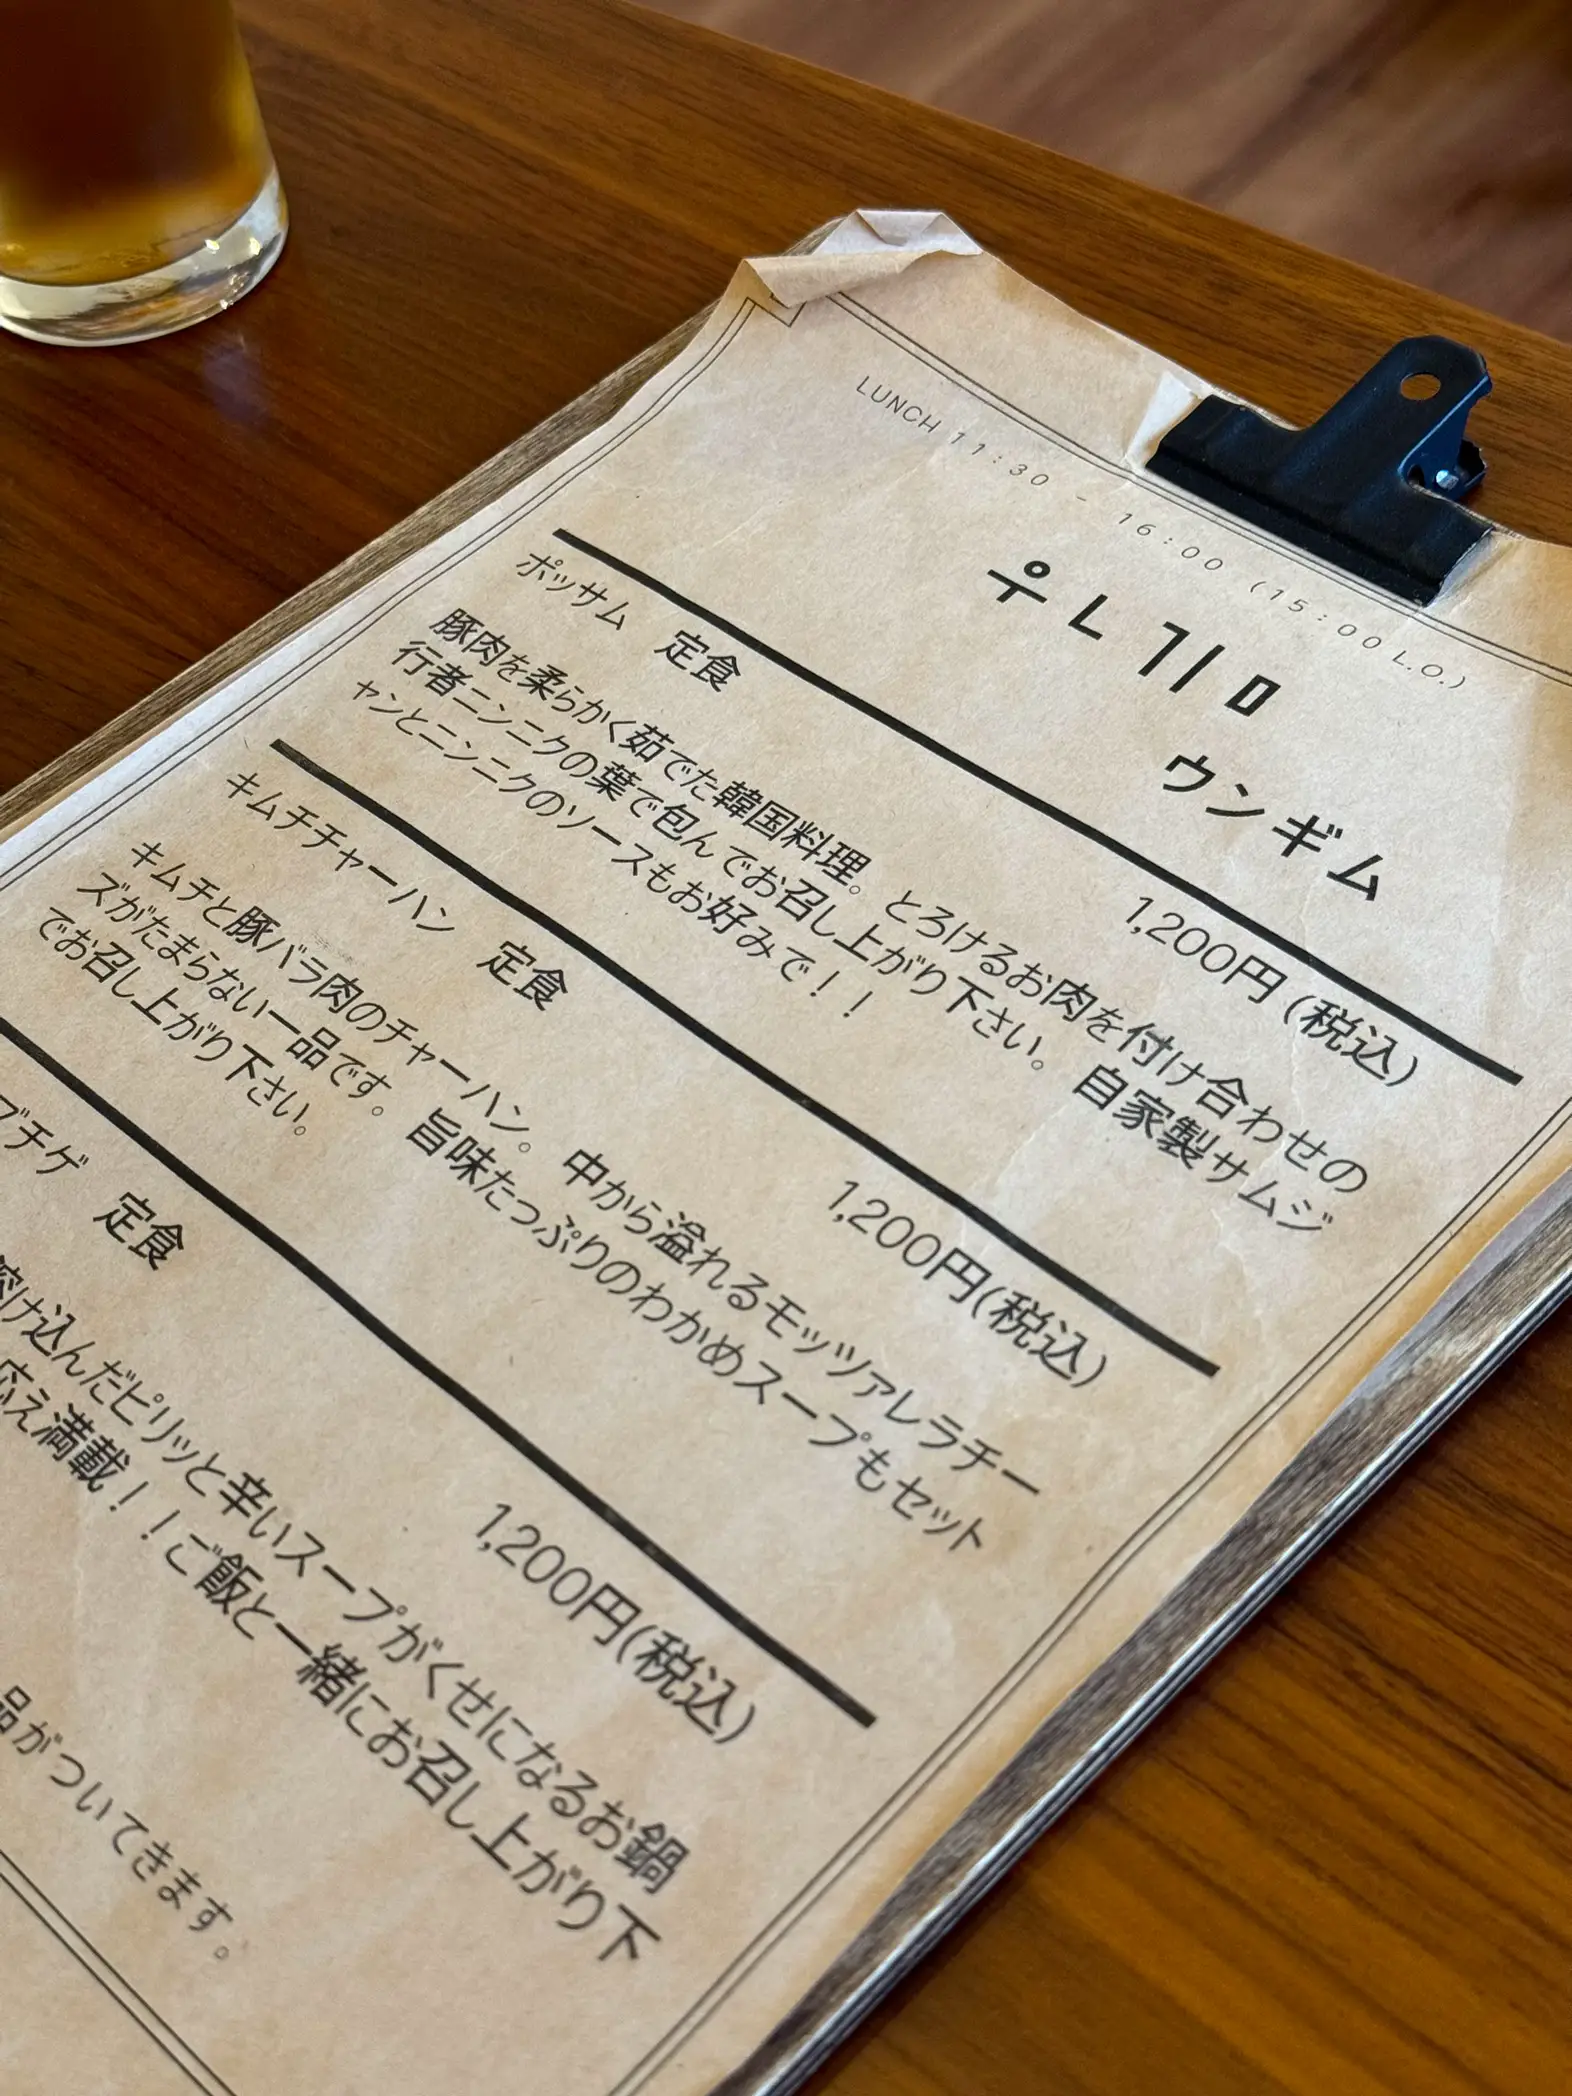 LUNCH 11:30 - 16:00 (15:00 L.O.)
우ㄴ기ㅁ
ウンギム
ポッサム 定食 1,200円 (税込)
豚肉を柔らかく茹でた韓国料理。とろけるお肉を付け合わせの
行者ニンニクの葉で包んでお召し上がり下さい。自家製サムジ
ャンとニンニクのソースもお好みで！！
キムチチャーハン 定食 1,200円(税込)
キムチと豚バラ肉のチャーハン。中から溢れるモッツァレラチー
ズがたまらない一品です。旨味たっぷりのわかめスープもセット
でお召し上がり下さい。
プチゲ 定食 1,200円(税込)
溶け込んだピリッと辛いスープがくせになるお鍋
応え満載！！ご飯と一緒にお召し上がり下
品がついてきます。